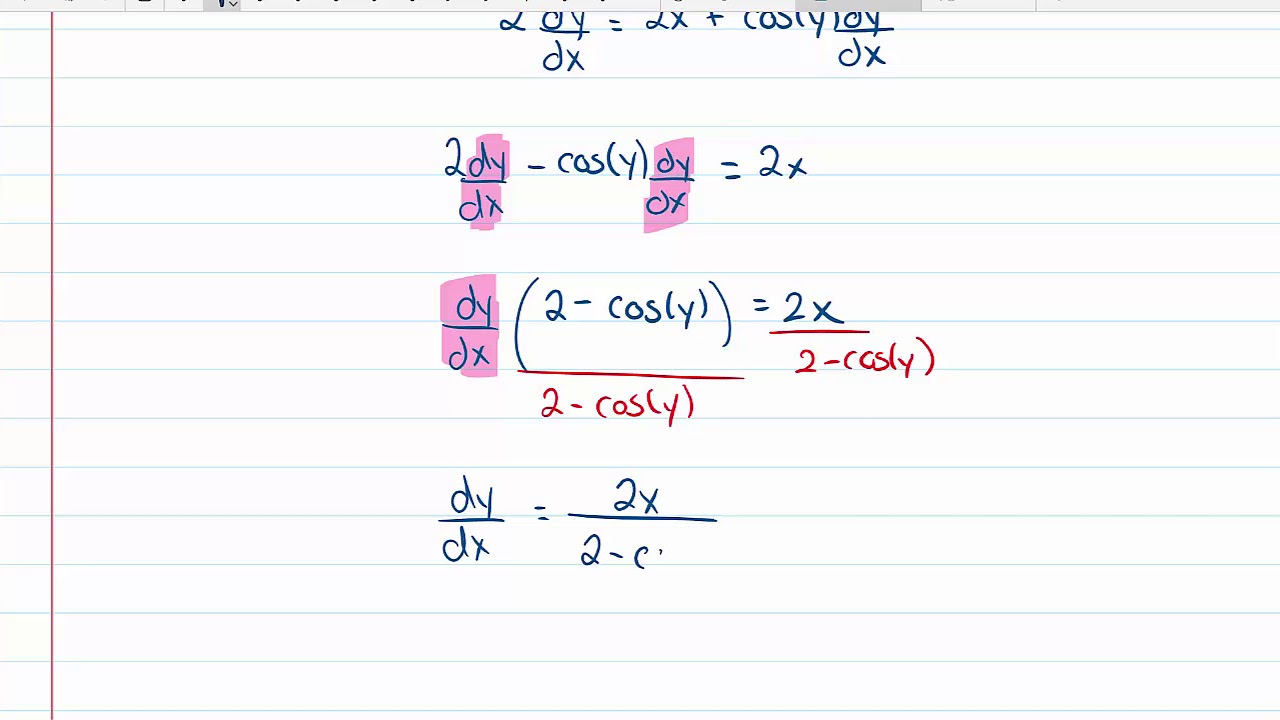 2 dy/dx = 2x + cos(y) dy/dx
2 dy/dx - cos(y) dy/dx = 2x
dy/dx (2 - cos(y)) / 2 - cos(y) = 2x / 2 - cos(y)
dy/dx = 2x / 2 - c